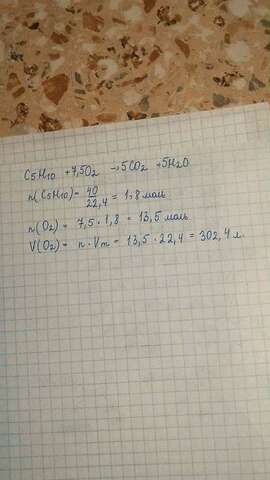 C5H10 +7,5O2 → 5CO2 +5H2O
n(C5H10)= 40/22,4 = 1,8 моль
n(O2) = 7,5 · 1,8 = 13,5 моль
V(O2) = n · Vm = 13,5 · 22,4 = 302,4 л.